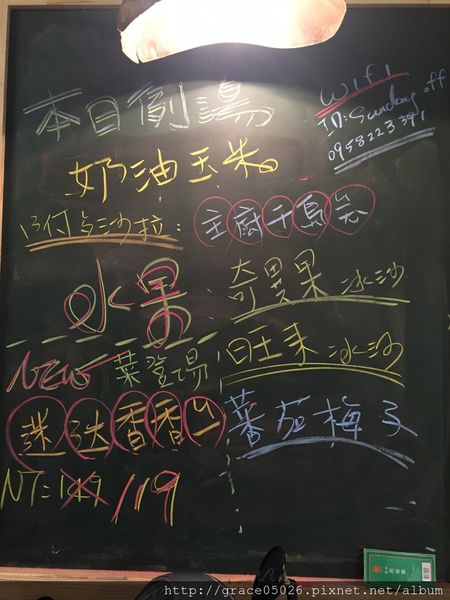 本日例湯
奶油玉米
wifi
ID: Sunday off
0958223391
沙拉:
主廚千島
水果:
奇異果冰沙
旺來冰沙
蕃茄梅子
NEW 菜登場
迷迭香香
NT: 149 119
http://grace05026.pixnet.net/album